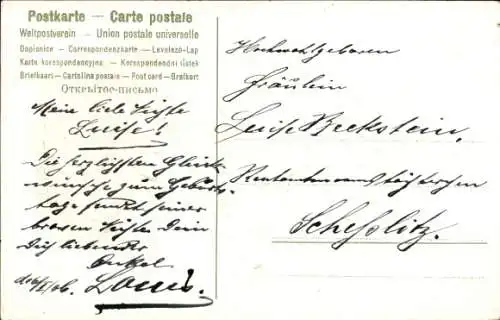 Postkarte — Carte postale
Weltpostverein — Union postale universelle
Dopisnice — Correspondenzkarte — Levelező-Lap
Karta korespondencyjna — Korespondenční lístek
Briefkaart — Cartolina postale — Post card — Brefkort
Открытое-письмо
Meine liebe Nichte
Luise!
Die herzlichsten Glück-
wünsche zum Geburts-
tage sendet seiner
braven Nichte Dein
Dich liebender
Onkel
Louis.
d. 6/ 06.
Hochwohlgeboren
Fräulein
Luise Beckstein,
Rentamtmannstöchterchen
Scheßlitz.